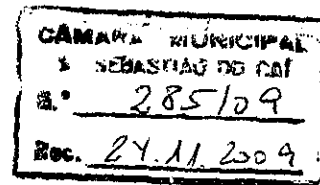 CÂMARA MUNICIPAL
S. SEBASTIÃO DO CAÍ
N.º 285/09
Rec. 24.11.2009